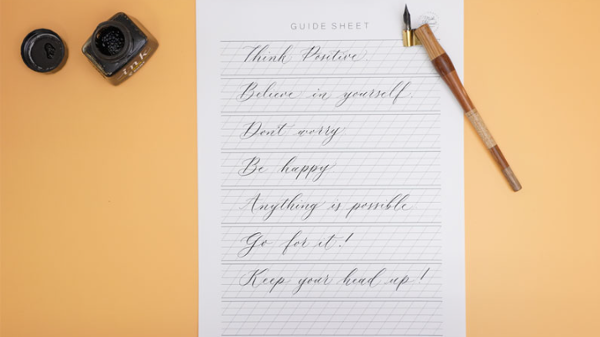 GUIDE SHEET
Think Positive
Believe in yourself.
Don't worry
Be happy
Anything is possible
Go for it!
Keep your head up!
ink